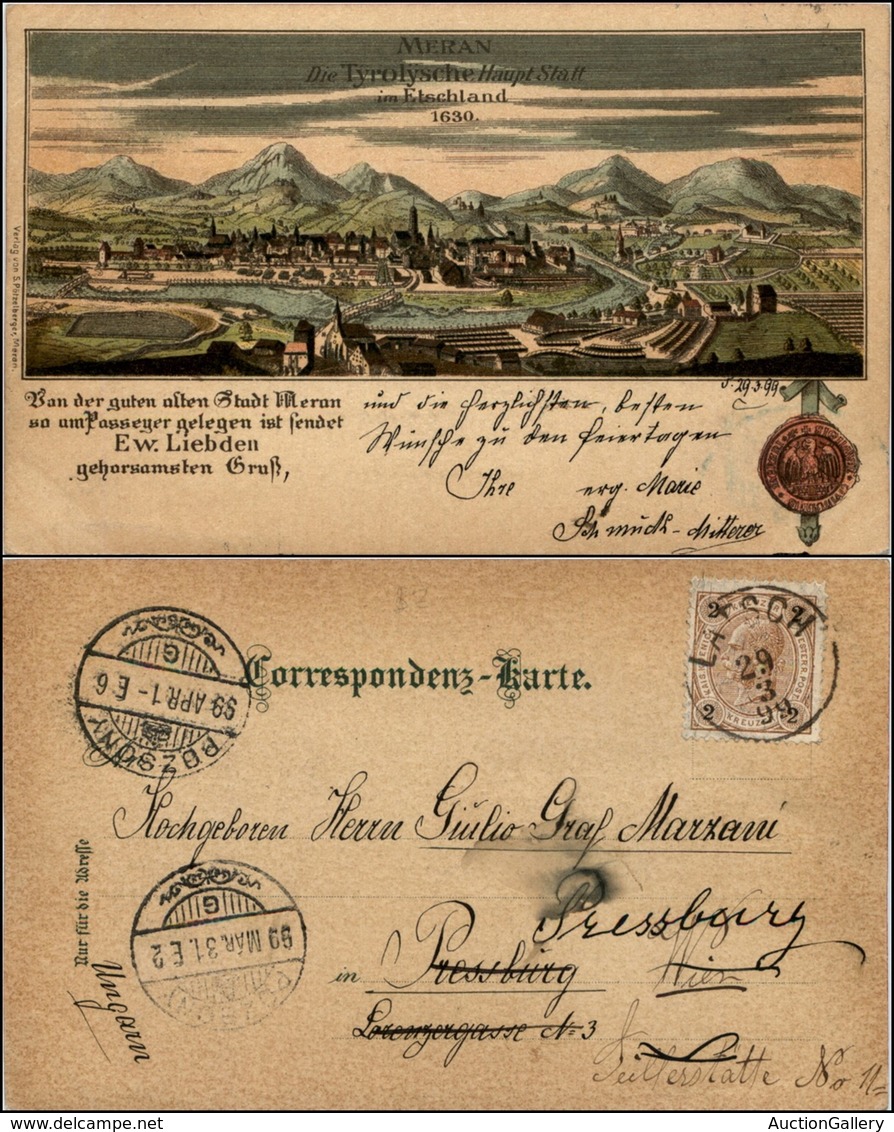 MERAN
Die Tyrolÿsche Haupt Statt
im Etschland
1630.
Verlag von S. Pötzelberger, Meran.
Von der guten alten Stadt Meran
so am Passeyer gelegen ist sendet
Ew. Liebden
gehorsamsten Gruß,
29.3.99
und die herzlichsten, besten
Wünsche zu den Feiertagen
Ihre erg. Marie
Schmuck-Mitterer
Correspondenz-Karte.
LATSCH
29
3
99
2 2
2 KREUZER 2
POZSONY
99 APR. 1 - E 6
G
Hochgeboren Herrn Giulio Graf Marzani
Pressburg
in Pressburg Wien
Lorenzergasse No 3
Seilerstätte No 11
Nur für die Adresse
Ungarn
G
99 MÁR. 31. E 2
POZSONY
AuctionGallery